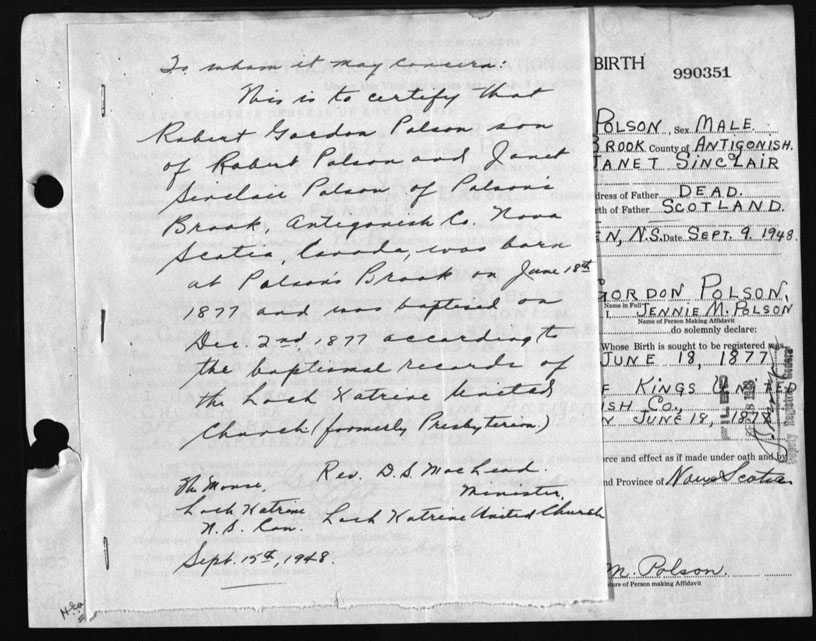 To whom it may concern:
This is to certify that
Robert Gordon Polson son
of Robert Polson and Janet
Sinclair Polson of Polson's
Brook, Antigonish Co. Nova
Scotia, Canada, was born
at Polson's Brook on June 18th
1877 and was baptised on
Dec. 2nd, 1877 according to
the baptismal records of
the Loch Katrine United
Church (formerly Presbyterian)
Rev. D. S.
Minister,
Loch Katrine United Church
The Manse,
Loch Katrine
N. S. Can.
Sept. 15th, 1948.
BIRTH
990351
POLSON, Sex MALE.
BROOK County of ANTIGONISH.
JANET SINCLAIR
dress of Father DEAD.
rth of Father SCOTLAND.
EN, N.S. Date SEPT. 9. 1948.
GORDON POLSON,
Name in Full
I, JENNIE M. POLSON
Name of Person Making Affidavit
do solemnly declare:
Whose Birth is sought to be registered was
JUNE 18, 1877
F KINGS UNITED
ISH CO.,
N JUNE 18, 1878
FILED
Deputy Registrar General
orce and effect as if made under oath and by
nd Province of Nova Scotia
M. Polson.
ture of Person making Affidavit